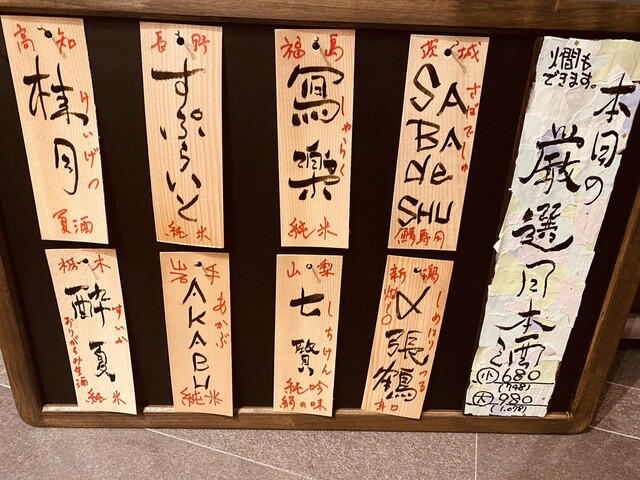 燗も
できます。
本日の
厳選日本酒
小 680
(748)
大 980
(1.078)
茨城
SABAdeSHU
さばでしゅ
鯖専用
福島
寫樂
しゃらく
純米
長野
すぷらいと
純米
高知
桂月
けいげつ
夏酒
新潟
〆張鶴
しめはりつる
山梨
七賢
しちけん
純吟
絹の味
岩手
AKABU
あかぶ
純米
栃木
酔夏
すいか
おりがらみ生酒
純米